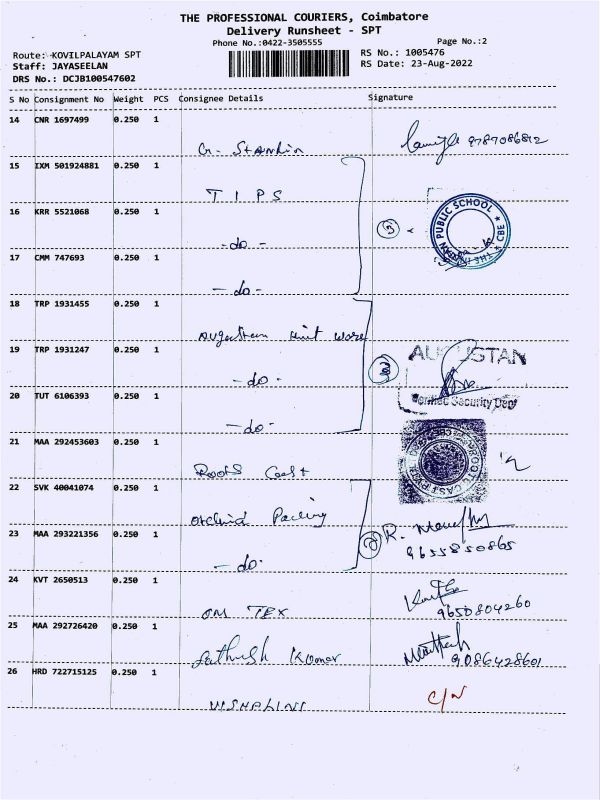 THE PROFESSIONAL COURIERS, Coimbatore
Delivery Runsheet - SPT
Phone No.:0422-3505555
Page No.:2
Route: KOVILPALAYAM SPT
RS No.: 1005476
Staff: JAYASEELAN
RS Date: 23-Aug-2022
DRS No.: DCJB100547602
S No Consignment No Weight PCS Consignee Details Signature
14 CNR 1697499 0.250 1
9787086812
15 IXM 501924881 0.250 1
T I P S
16 KRR 5521068 0.250 1
PUBLIC SCHOOL ★ CBE
3
- do -
17 CMM 747693 0.250 1
- do -
18 TRP 1931455 0.250 1
19 TRP 1931247 0.250 1
AUGUSTAN
- do -
20 TUT 6106393 0.250 1
Verified Security Dept
- do -
21 MAA 292453603 0.250 1
Roots Cast
22 SVK 40041074 0.250 1
Orchid Packing
23 MAA 293221356 0.250 1
R.
9655850865
- do -
24 KVT 2650513 0.250 1
9650804260
OM TEX
25 MAA 292726420 0.250 1
Sathish Kumar
9086428601
26 HRD 722715125 0.250 1
C/N
VISHALINI